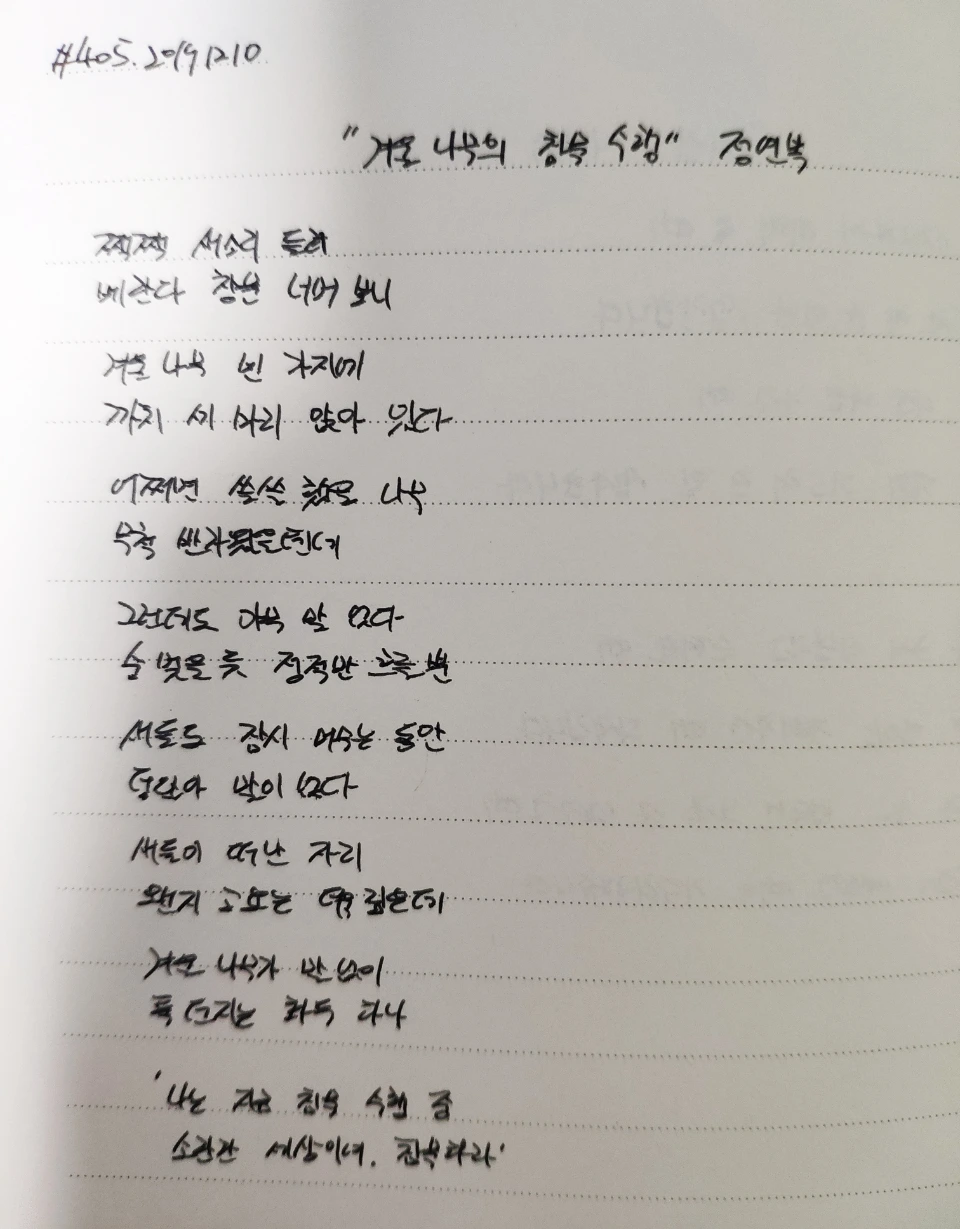 #405. 20191210
"겨울 나무의 침묵 수행" 정연복
짹짹 새소리 들려
베란다 창문 너머 보니
겨울 나무 빈 가지에
까치 세 마리 앉아 있다
어쩌면 쓸쓸했을 나무
무척 반가웠을 텐데
그런데도 아무 말 없다
숨 멎을 듯 정적만 흐를 뿐
새들도 잠시 머무는 동안
덩달아 말이 없다
새들이 떠난 자리
왠지 고요는 더욱 깊은데
겨울 나무가 말 없이
툭 던지는 화두 하나
'나는 지금 침묵 수행 중
소란한 세상이여, 침묵하라'